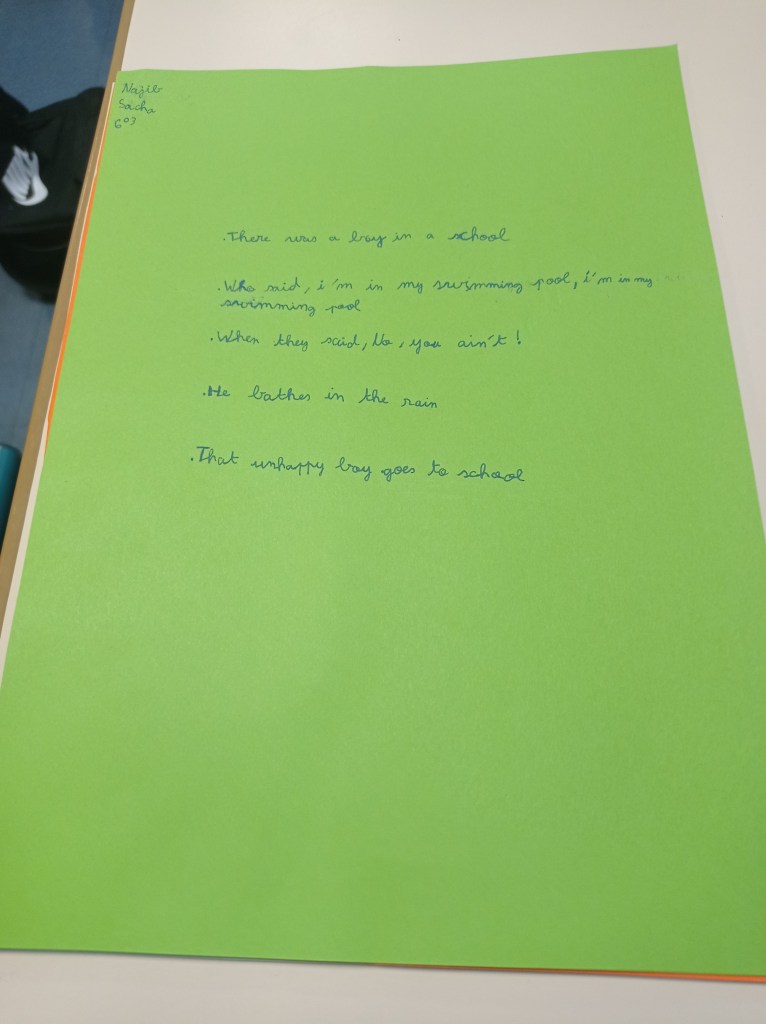 Najib
Sacha
603
.There was a boy in a school
.Who said, i'm in my swimming pool, i'm in my
swimming pool
.When they said, No, you ain't!
.He bathes in the rain
.That unhappy boy goes to school